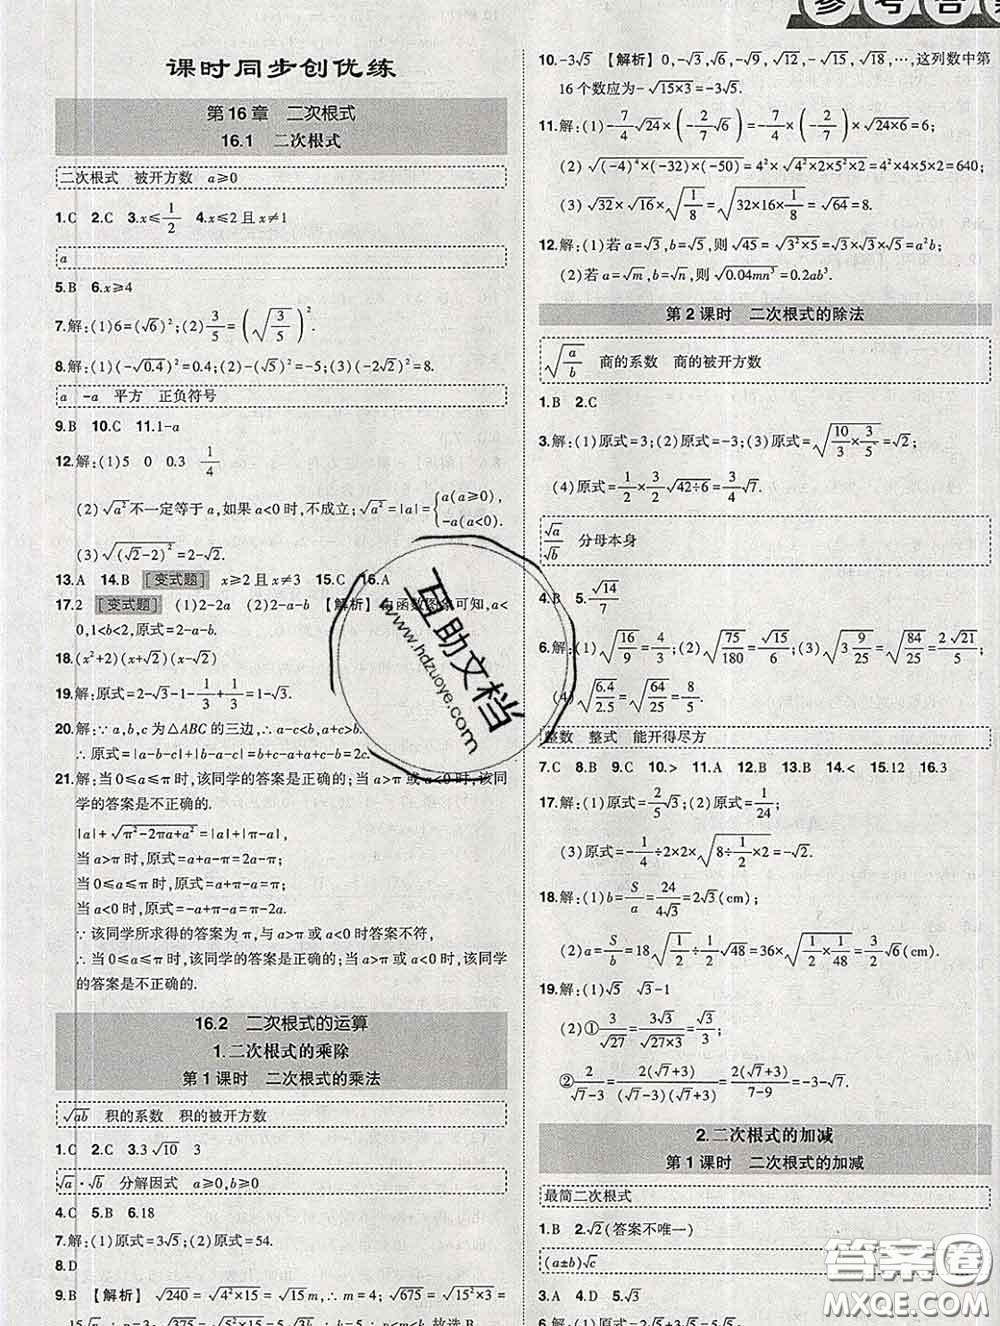 参考答案
课时同步创优练
第16章 二次根式
16.1 二次根式
二次根式 被开方数 a≥0
1.C 2.C 3.x≤1/2 4.x≤2且x≠1
a
5.B 6.x≥4
7.解:(1)6=(√6)²;(2)3/5=(√(3/5))².
8.解:(1)(-√0.4)²=0.4;(2)-(√5)²=-5;(3)(-2√2)²=8.
a -a 平方 正负符号
9.B 10.C 11.1-a
12.解:(1)5 0 0.3 1/4
(2)√a²不一定等于a,如果a<0时,不成立;√a²=|a|={a(a≥0), -a(a<0).
(3)√(√2-2)²=2-√2.
13.A 14.B [变式题] x≥2且x≠3 15.C 16.A
17.2 [变式题] (1)2-2a (2)2-a-b 【解析】由函数图象可知,a<
0,1<b<2,原式=2-a-b.
18.(x²+2)(x+√2)(x-√2)
19.解:原式=2-√3-1-1/3+1/3=1-√3.
20.解:∵a,b,c为△ABC的三边,∴a-c<b,a+c>b.
∴原式=|a-b-c|+|b-a-c|=b+c-a+a+c-b=2c.
21.解:当0≤a≤π时,该同学的答案是正确的;当a>π或a<0时,该同
学的答案是不正确的.
|a|+√(π²-2πa+a²)=|a|+|π-a|,
当a>π时,原式=a+a-π=2a-π;
当0≤a≤π时,原式=a+π-a=π;
当a<0时,原式=-a+π-a=π-2a.
∵该同学所求得的答案为π,与a>π或a<0时答案不符,
∴当0≤a≤π时,该同学的答案是正确的;当a>π或a<0时,该同学
的答案是不正确的.
16.2 二次根式的运算
1.二次根式的乘除
第1课时 二次根式的乘法
√ab 积的系数 积的被开方数
1.C 2.C 3.3√10 3
√a·√b 分解因式 a≥0,b≥0
4.C 5.B 6.18
7.解:(1)原式=3√5;(2)原式=54.
8.D
9.B 【解析】√240=√(4²×15)=4√15=m,∴√15=
10.-3√5 【解析】0,-√3,√6,-√9,√12,-√15,√18,…,这列数中第
16个数应为-√(15×3)=-3√5.
11.解:(1)-7/4√24×(-2/7√6)=(-7/4)×(-2/7)×√(24×6)=6;
(2)√((-4)⁴×(-32)×(-50))=4²×√(4²×2×5²×2)=4²×4×5×2=640;
(3)√32×√16×√(1/8)=√(32×16×1/8)=√64=8.
12.解:(1)若a=√3,b=√5,则√45=√(3²×5)=√3×√3×√5=a²b;
(2)若a=√m,b=√n,则√(0.04mn³)=0.2ab³.
第2课时 二次根式的除法
√(a/b) 商的系数 商的被开方数
1.B 2.C
3.解:(1)原式=3;(2)原式=-3;(3)原式=√(10/3×3/5)=√2;
(4)原式=1/2×3/2×√(42÷6)=3/4√7.
√a/√b 分母本身
4.B 5.√14/7
6.解:(1)√(16/9)=4/3;(2)√(75/180)=√15/6;(3)√(3 9/25)=√(84/25)=2√21/5;
(4)√(6.4/2.5)=√(64/25)=8/5.
整数 整式 能开得尽方
7.C 8.B 9.C 10.> 11.A 12.B 13.B 14.< 15.12 16.3
17.解:(1)原式=2/5√3;(2)原式=1/24;
(3)原式=-1/4÷2×2×√(8÷1/2×2)=-√2.
18.解:(1)b=S/a=24/4√3=2√3(cm);
(2)a=S/b=18√(1/2)÷1/2√48=36×√(1/2×1/48)=3/2√6(cm)
19.解:(1)√5 √3-1
(2)①3/√27=3√3/√(27×3)=√3/3;
②2/(√7-3)=2(√7+3)/((√7-3)(√7+3))=2(√7+3)/(7-9)=-3-√7.
2.二次根式的加减
第1课时 二次根式的加减
最简二次根式
1.B 2.√2(答案不唯一)
(a±b)√c
3.A 4.D 5.√3
互助文档
www.hdzuoye.com
答案圈
MXQE.COM